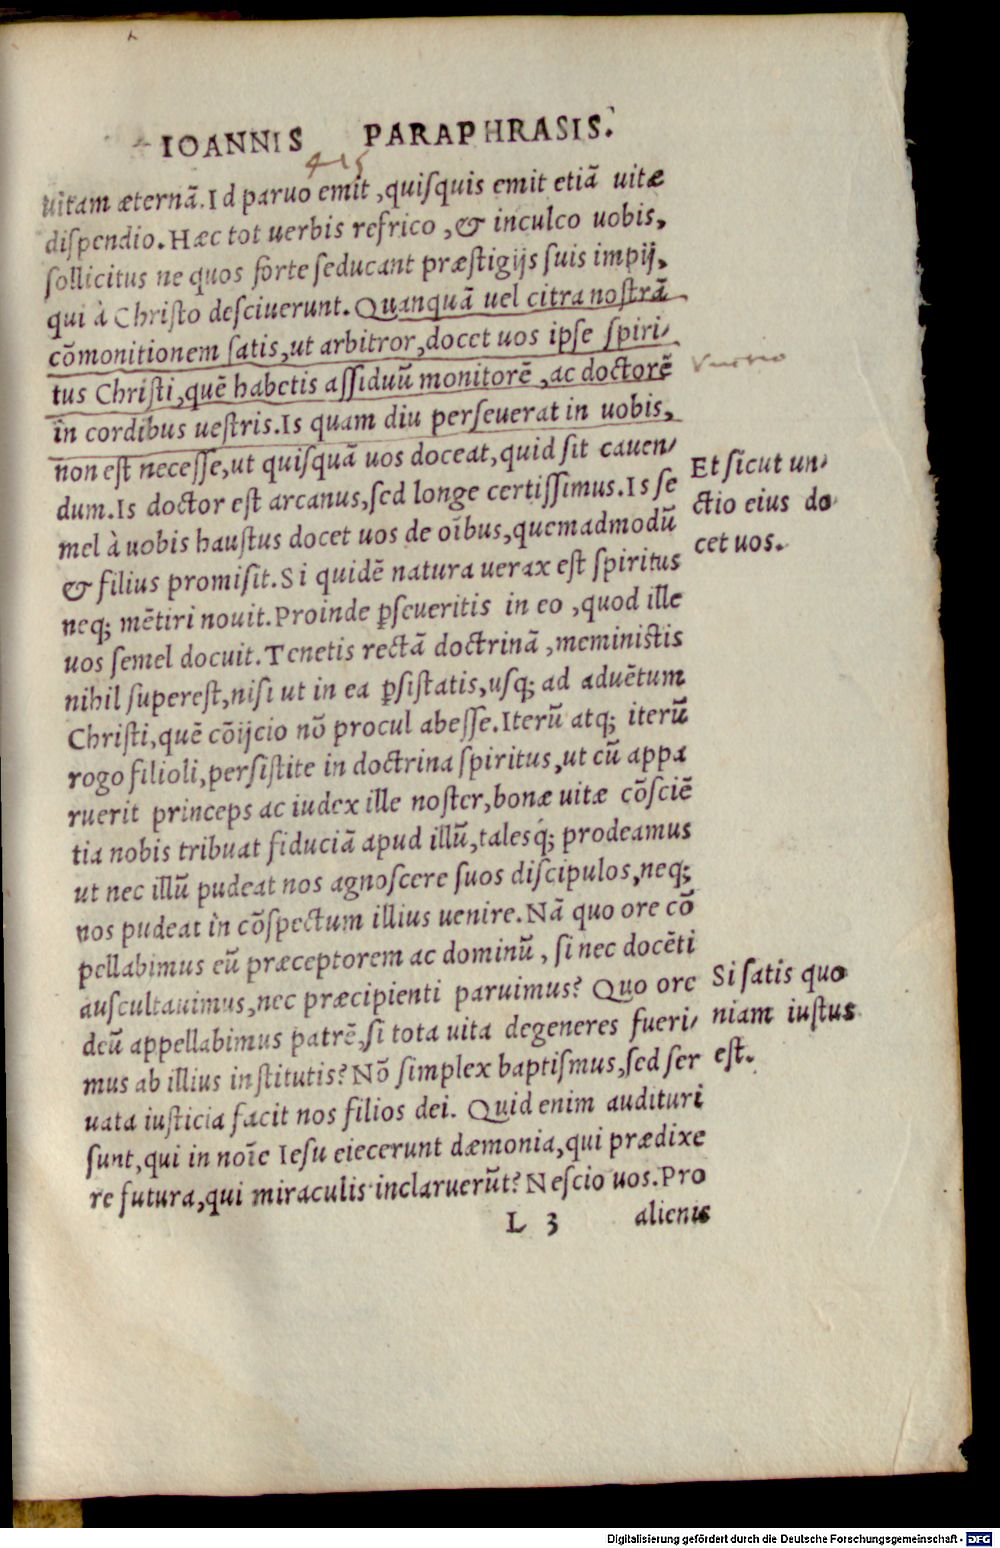 IOANNIS PARAPHRASIS.
415
uitam æternã. Id paruo emit, quisquis emit etiã uitæ
dispendio. Hæc tot uerbis refrico, & inculco uobis,
sollicitus ne quos forte seducant præstigijs suis impij,
qui à Christo desciuerunt. Quanquã uel citra nostrã
cõmonitionem satis, ut arbitror, docet uos ipse spiri-
tus Christi, quẽ habetis assiduũ monitorẽ, ac doctorẽ
in cordibus uestris. Is quam diu perseuerat in uobis,
non est necesse, ut quisquã uos doceat, quid sit cauen-
dum. Is doctor est arcanus, sed longe certissimus. Is se
mel à uobis haustus docet uos de oĩbus, quemadmodũ
& filius promisit. Si quidẽ natura uerax est spiritus
neq; mẽtiri nouit. Proinde ꝑseueritis in eo, quod ille
uos semel docuit. Tenetis rectã doctrinã, meministis
nihil superest, nisi ut in ea ꝑsistatis, usq; ad aduẽtum
Christi, quẽ cõijcio nõ procul abesse. Iterũ atq; iterũ
rogo filioli, persistite in doctrina spiritus, ut cũ appa
ruerit princeps ac iudex ille noster, bonæ uitæ cõsciẽ
tia nobis tribuat fiduciã apud illũ, talesq́; prodeamus
ut nec illũ pudeat nos agnoscere suos discipulos, neq;
nos pudeat in cõspectum illius uenire. Nã quo ore cõ
pellabimus eũ præceptorem ac dominũ, si nec docẽti
auscultauimus, nec præcipienti paruimus? Quo ore
deũ appellabimus patrẽ, si tota uita degeneres fueri-
mus ab illius institutis? Nõ simplex baptismus, sed ser
uata iusticia facit nos filios dei. Quid enim audituri
sunt, qui in noĩe Iesu eiecerunt dæmonia, qui prædixe
re futura, qui miraculis inclaruerũt? Nescio uos. Pro
L 3 alienis
Et sicut un-
ctio eius do
cet uos.
Si satis quo
niam iustus
est.
Digitalisierung gefördert durch die Deutsche Forschungsgemeinschaft - DFG